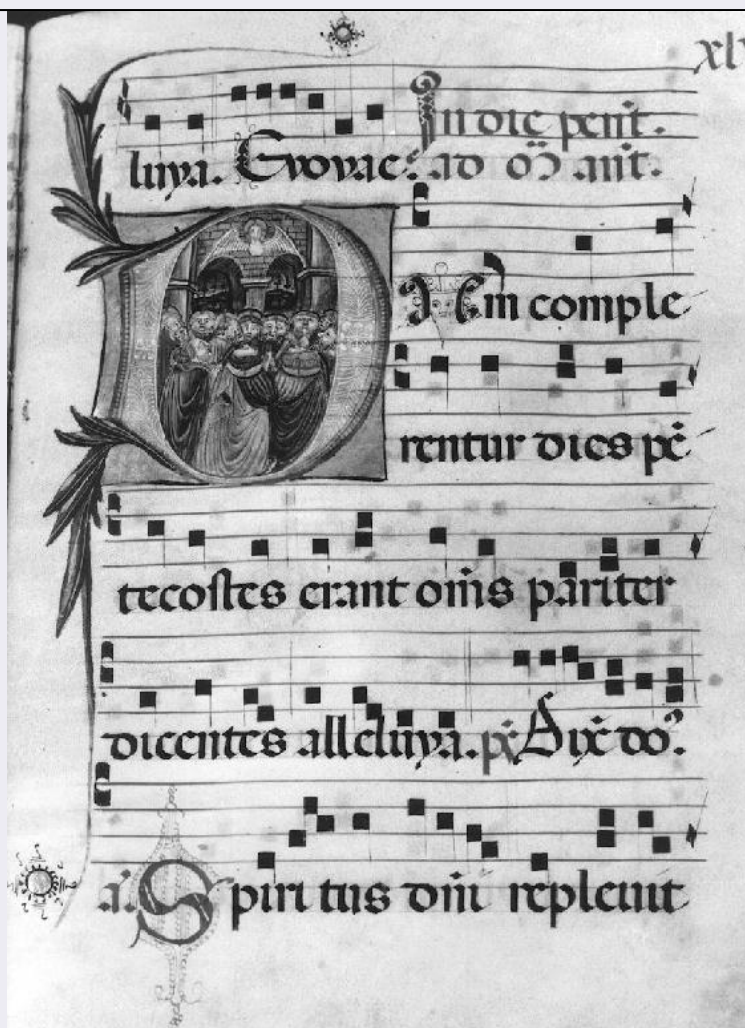 xl
In die pent.
luya. Evovae. ad oĩ ant.
Dum comple
rentur dies pē
tecostes erant om̄s pariter
dicentes alleluya. ps̄ Dix̄ do⁹.
a. Spiritus dñi replevit